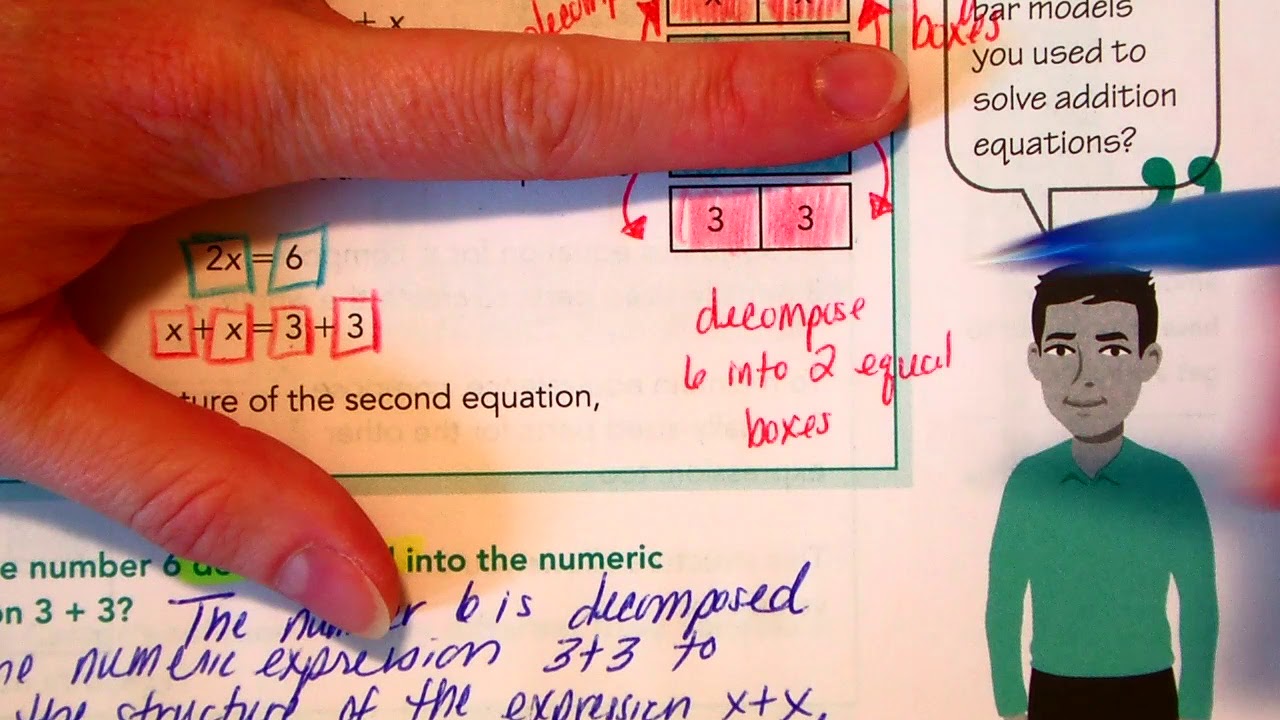 + x
x x
boxes
bar models
you used to
solve addition
equations?
3 3
2x = 6
x + x = 3 + 3
decompose
6 into 2 equal
boxes
ture of the second equation,
e number 6 into the numeric
on 3 + 3?
The number 6 is decomposed
he numeric expression 3+3 to
the structure of the expression x+x.